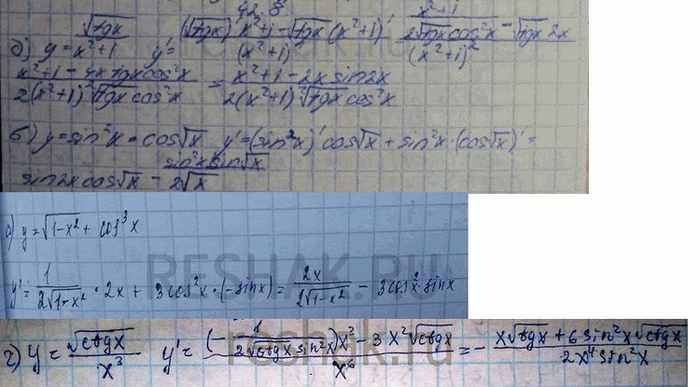 42.8
д) y = √tgx / x²+1 y' = (√tgx)' x²+1 - √tgx (x²+1)' / (x²+1)² x²+1 / 2√tgx cos²x - √tgx 2x / (x²+1)²
x²+1 - 4x tgx cos²x / 2(x²+1)²√tgx cos²x = x²+1 - 2x sin2x / 2(x²+1)²√tgx cos²x
б) y = sin²x · cos√x y' = (sin²x)' cos√x + sin²x · (cos√x)' =
sin2x cos√x - sin²x sin√x / 2√x
а) y = √1-x² + cos³x
y' = 1 / 2√1-x² · 2x + 3cos²x · (-sinx) = 2x / 2√1-x² - 3cos²x · sinx
RESHAK.RU
г) y = √ctgx / x³ y' = (- 1 / 2√ctgx sin²x) x³ - 3x²√ctgx / x⁶ = - x√tgx + 6sin²x√ctgx / 2x⁴sin²x
reshak.ru